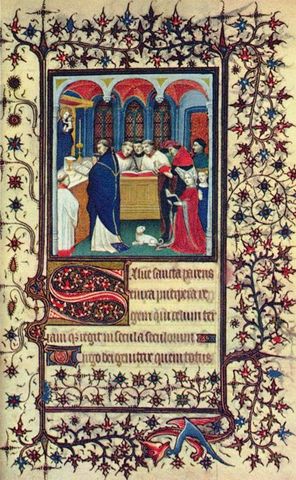 Salve sancta parens
enixa puerpera re
gem qui celum ter
ram q regit in secula seculorum
Virgo dei genitrix quem totus